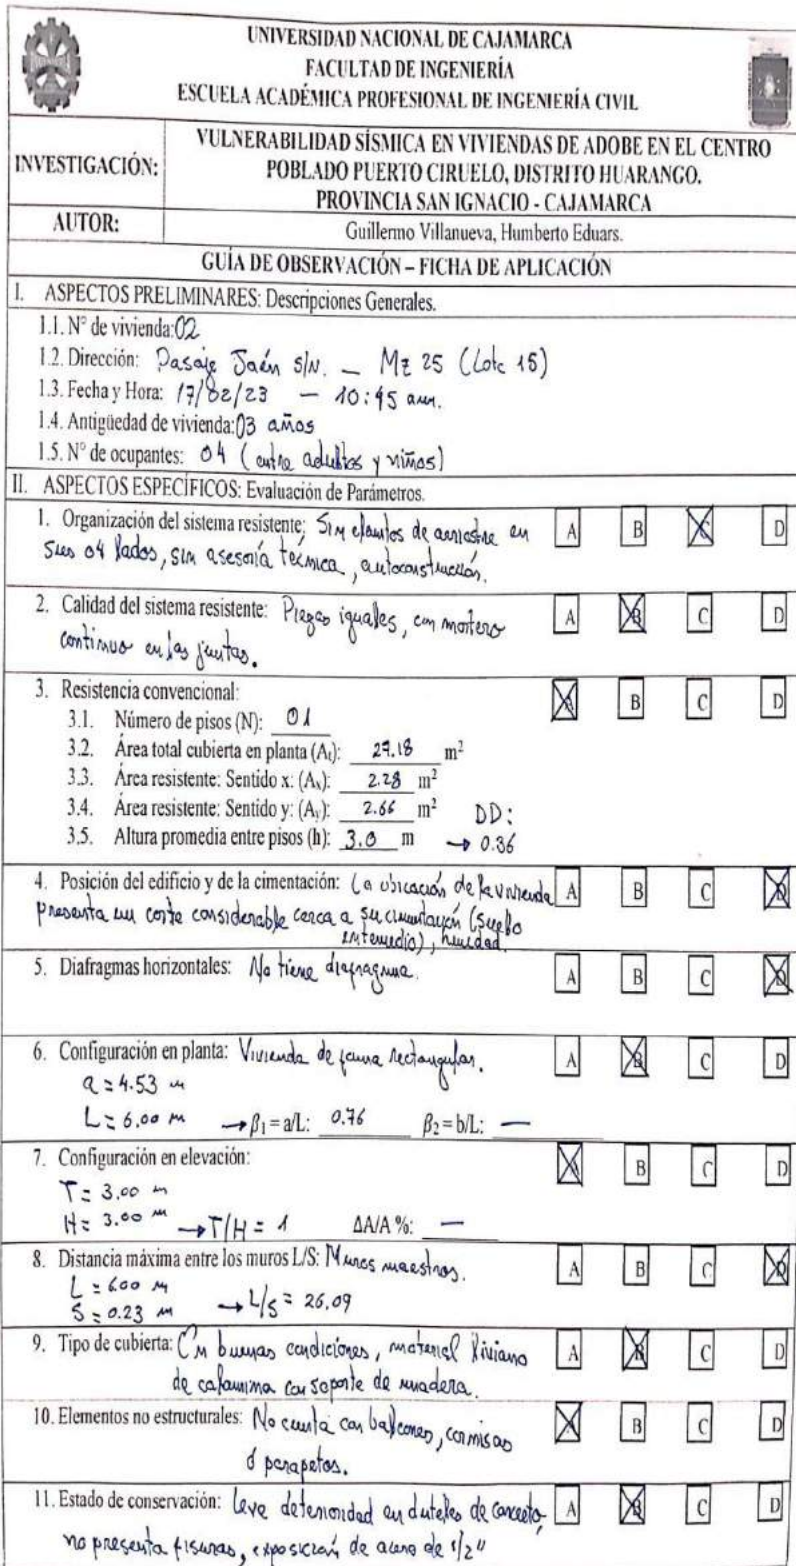 UNIVERSIDAD NACIONAL DE CAJAMARCA
FACULTAD DE INGENIERÍA
ESCUELA ACADÉMICA PROFESIONAL DE INGENIERÍA CIVIL
INVESTIGACIÓN:
VULNERABILIDAD SÍSMICA EN VIVIENDAS DE ADOBE EN EL CENTRO
POBLADO PUERTO CIRUELO, DISTRITO HUARANGO.
PROVINCIA SAN IGNACIO - CAJAMARCA
AUTOR:
Guillermo Villanueva, Humberto Eduars.
GUÍA DE OBSERVACIÓN – FICHA DE APLICACIÓN
I. ASPECTOS PRELIMINARES: Descripciones Generales.
1.1. N° de vivienda: 02
1.2. Dirección: Pasaje Jaén S/N. — Mz 25 (Lote 15)
1.3. Fecha y Hora: 17/02/23 — 10:45 am.
1.4. Antigüedad de vivienda: 03 años
1.5. N° de ocupantes: 04 (entre adultos y niños)
II. ASPECTOS ESPECÍFICOS: Evaluación de Parámetros.
1. Organización del sistema resistente: Sin elementos de arriostre en A B C D
sus 04 lados, sin asesoría técnica, autoconstrucción.
2. Calidad del sistema resistente: Piezas iguales, con mortero A B C D
continuo en las juntas.
3. Resistencia convencional: A B C D
3.1. Número de pisos (N): 01
3.2. Área total cubierta en planta (At): 27.18 m²
3.3. Área resistente: Sentido x: (Ax): 2.28 m²
3.4. Área resistente: Sentido y: (Ay): 2.66 m² DD:
3.5. Altura promedia entre pisos (h): 3.0 m → 0.36
4. Posición del edificio y de la cimentación: La ubicación de la vivienda A B C D
presenta un corte considerable cerca a su cimentación (suelo
intermedio), humedad.
5. Diafragmas horizontales: No tiene diafragma. A B C D
6. Configuración en planta: Vivienda de forma rectangular. A B C D
a = 4.53 m
L = 6.00 m → β1 = a/L: 0.76 β2 = b/L: —
7. Configuración en elevación: A B C D
T = 3.00 m
H = 3.00 m → T/H = 1 ΔA/A %: —
8. Distancia máxima entre los muros L/S: Muros maestros. A B C D
L = 6.00 m
S = 0.23 m → L/S = 26.09
9. Tipo de cubierta: En buenas condiciones, material liviano A B C D
de calamina con soporte de madera.
10. Elementos no estructurales: No cuenta con balcones, cornisas A B C D
ó parapetos.
11. Estado de conservación: Leve deterioridad en dinteles de concreto, A B C D
no presenta fisuras, exposición de acero de 1/2"